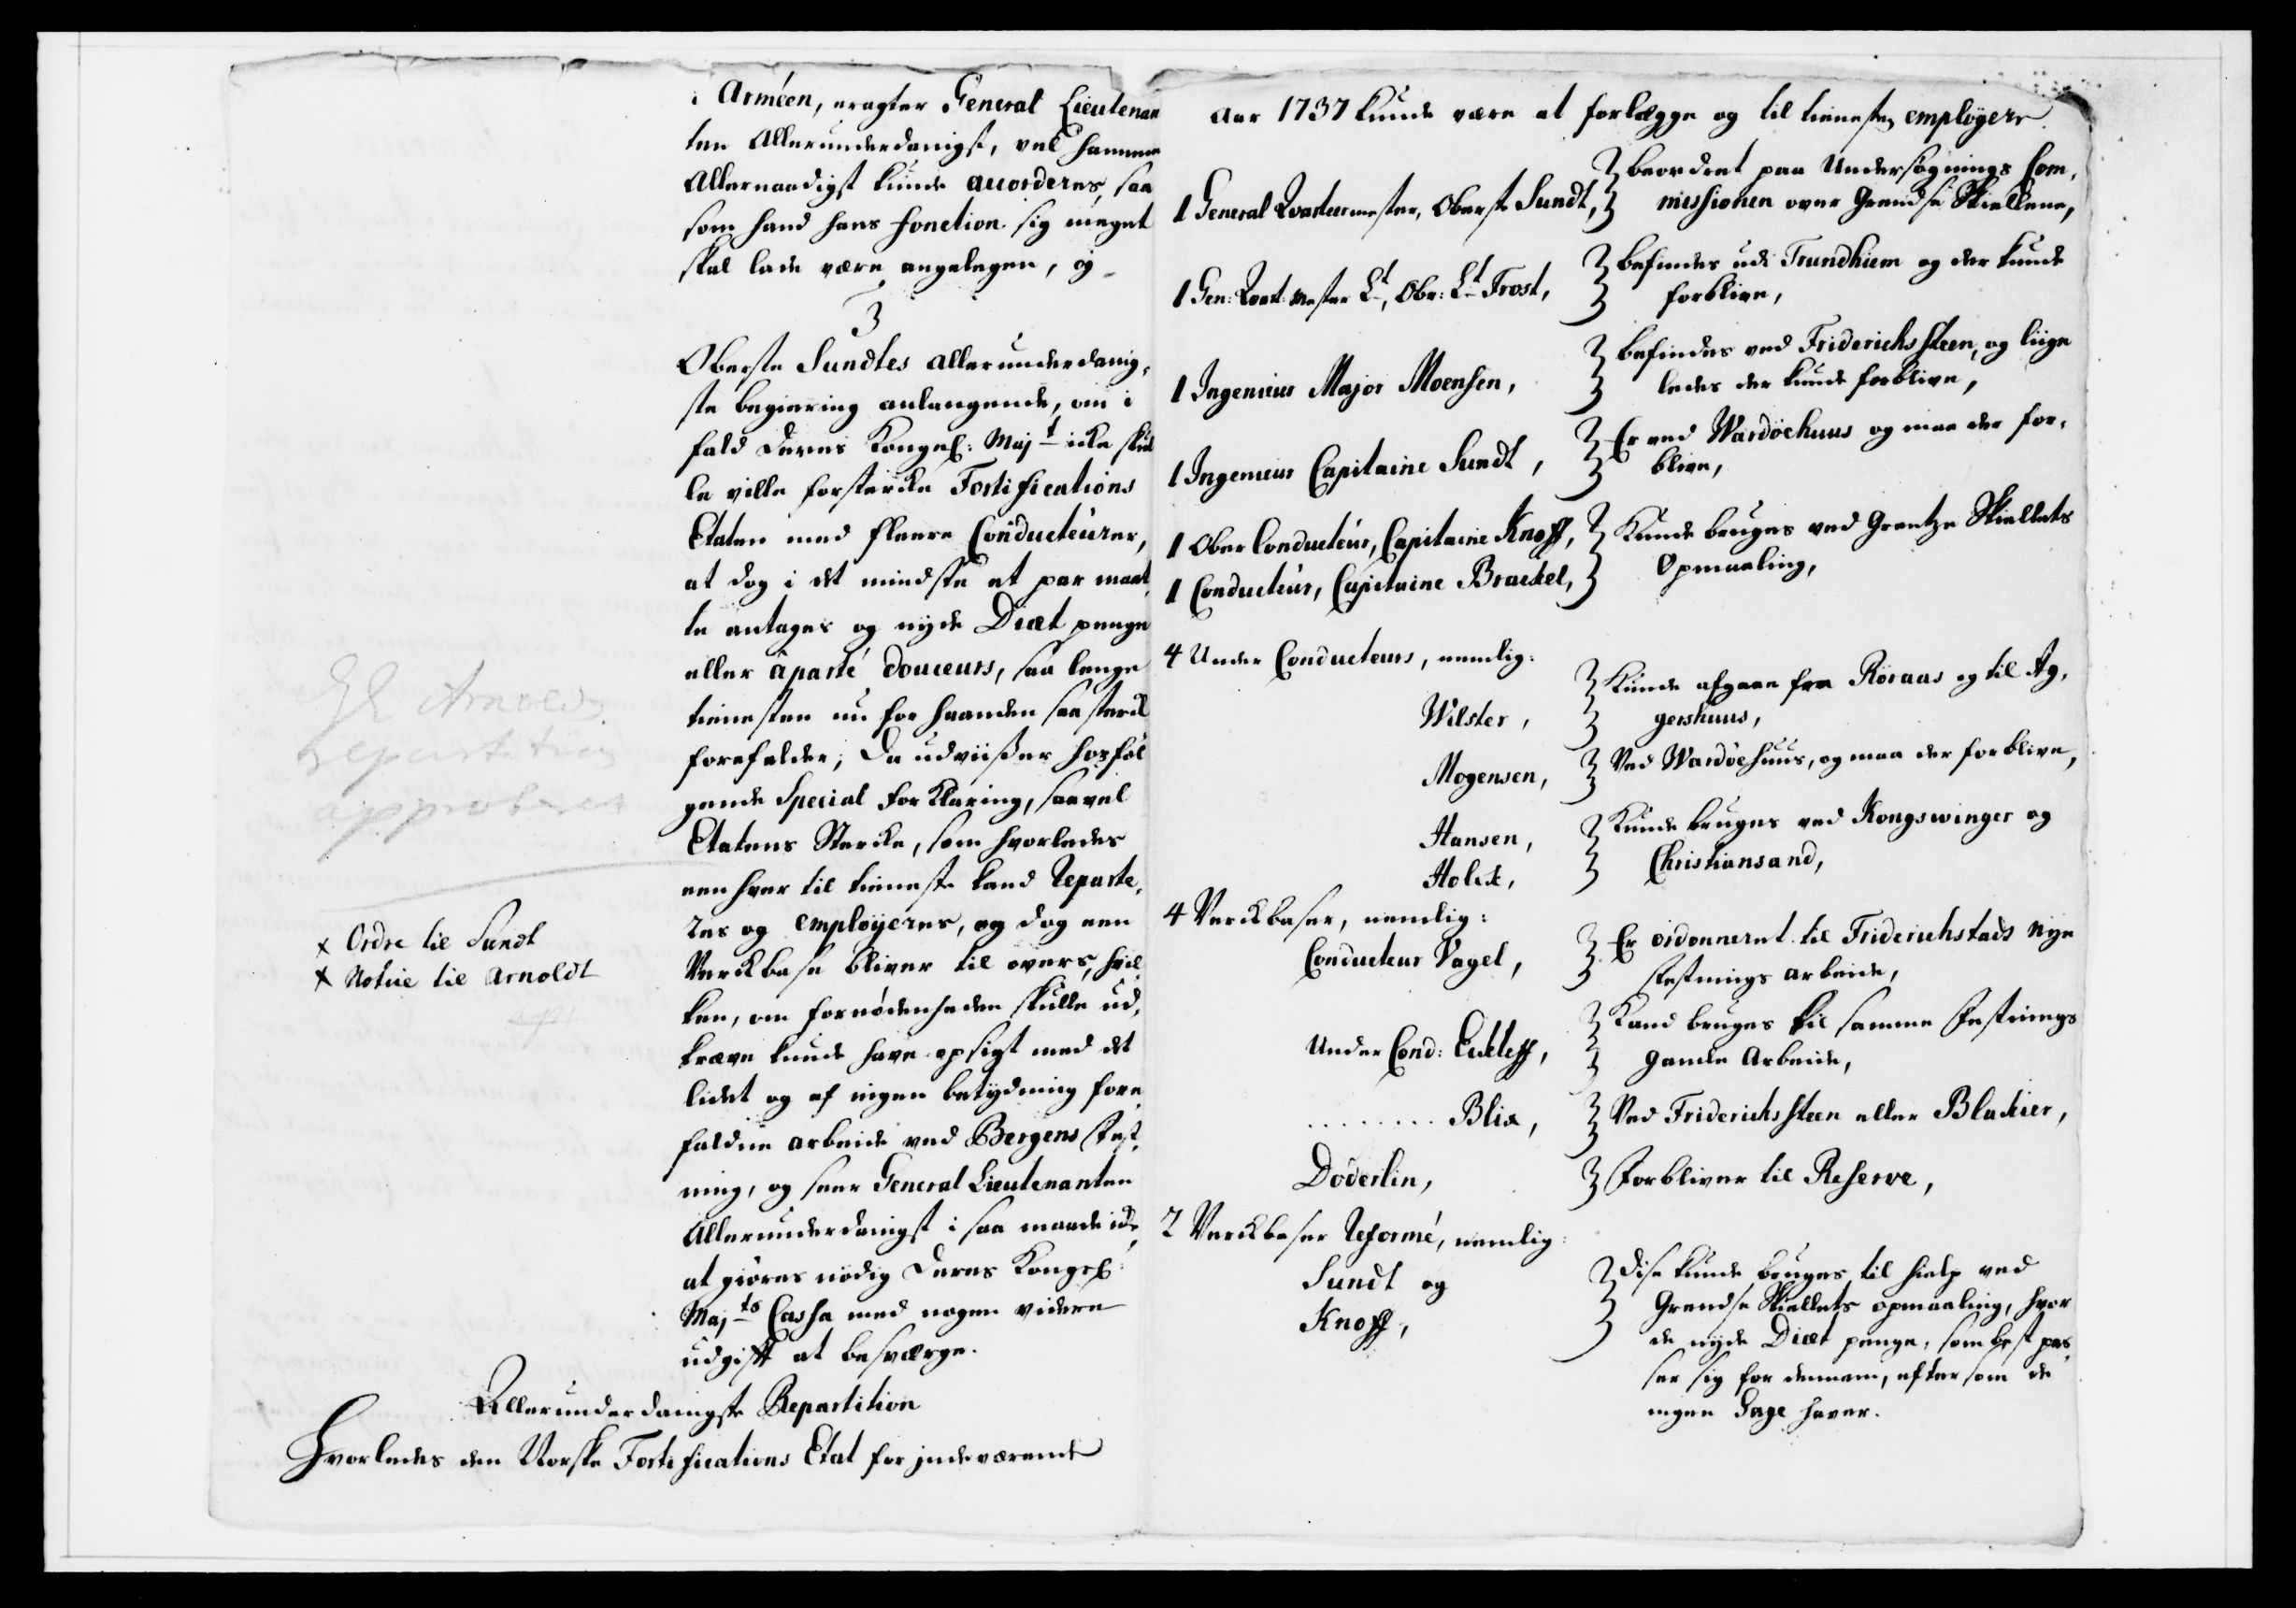 i Arméen, eragter General Lieutenan
ten Allerunderdanigst, vel hannem
Allernaadigst kunde accorderes, saa
som hand hans fonction sig meget
skal lade være angelegen, og
3
Oberste Sundtes allerunderdanig,
ste begiering anlangende, om i
fald Deres Kongel: Majt icke skul
le ville forstercke Fortifications
Etaten med fleere Conducteurer,
at dog i det mindste et par maat,
te antages og nyde Diæt penge
eller àparté douceurs, saa lenge
tienesten nu for haanden saa sterck
forefalder; Da udviiser hosføl
gende Special Forklaring, saavel
Etatens Stercke, som hvorledes
een hver til tieneste kand Reparte,
res og employeres, og dog een
Verckbase bliver til overs, hvil,
ken, om fornødenheden skulle ud,
kræve kunde have opsigt med det
lidet og af ingen betydning fore,
faldne arbeide ved Bergens Fest,
ning, og seer General Lieutenanten
Allerunderdanigst i saa maade icke
at giøres nødig Deres Kongel:
Majts Cassa med nogen videre
udgifft at besværge.
Allerunderdanigste Repartition
Hvorledes den Norske Fortifications Etat for indeværende
Gl Arnolds
repartition
approberes
x Ordre til Sundt
x Notice til Arnoldt
Aar 1737 kunde være at forlægge og til tienesten employere.
1 General Qvarteermester, Oberste Sundt, beordret paa Undersøgnings Com,
missionen over Grendse Skiellene,
1 Gen: Qvart: Mester Lt, Obr: Lt Frost, befindes udi Trundhiem og der kunde
forblive,
1 Ingenieur Major Moensen, befindes ved Friderichssteen, og liige
ledes der kunde forblive,
1 Ingenieur Capitaine Sundt, Er ved Wardøehuus og maa der for,
blive,
1 Ober Conducteur, Capitaine Knoff, Kunde bruges ved Grentze Skiellets
1 Conducteur, Capitaine Brackel, Opmaaling,
4 Under Conducteurs, nemlig:
Wilster, Kunde afgaae fra Röraas og til Ag,
gershuus,
Mogensen, Ved Wardöehuus, og maa der forblive,
Hansen, Kunde bruges ved Kongswinger og
Holck, Christiansand,
4 Verckbaser, nemlig:
Conducteur Vagel, Er ordonneret til Friderichstads Nye
Festnings arbeide,
Under Cond: Eickleff, Kand bruges til samme Festnings
gamle Arbeide,
........ Blix, Ved Friderichssteen eller Blackier,
Döderlin, Forbliver til Reserve,
2 Verckbaser Reformé, nemlig:
Sundt og Dise kunde bruges til hielp ved
Knoff, Grendse Skiellets opmaaling, hvor
de nyde Diæt penge, som best pas,
ser sig for dennem, eftersom de
ingen Gage haver.